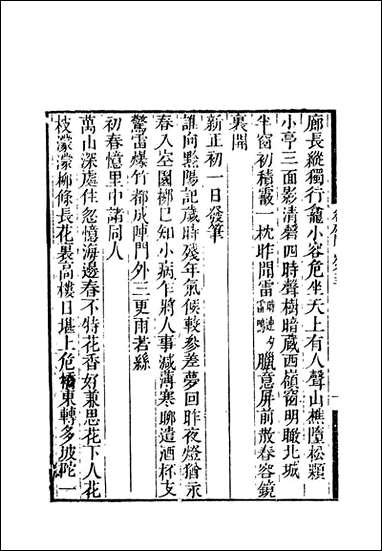 廊長縱獨行龕小容危坐天上有人聲山樵墮松顆
小亭三面影清磬四時聲樹暗藏西嶺窗明瞰北城
半窗初積霰一枕昨聞雷連夕雷鳴臘意屏前散春容鏡
裏開
新正初一日發筆
誰向黔陽記歲時殘年氣候較參差夢回昨夜燈猶永
春入空園柳已知小病乍將人事減薄寒聊遣酒杯支
驚雷爆竹都成陣門外三更雨若絲
初春憶里中諸同人
萬山深處住忽憶海邊春不特花香好兼思花下人花
枝濛濛柳條長花裏高樓日堪上危橋東轉多坡陀一